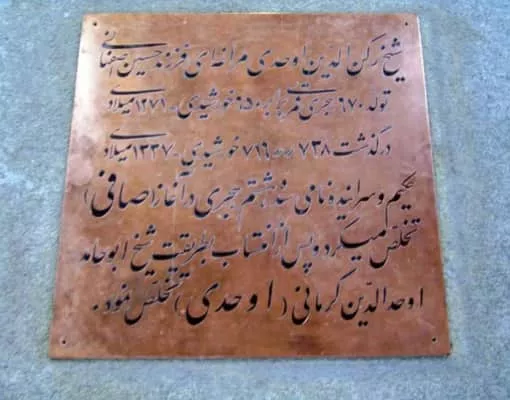 شیخ رکن الدین اوحدی مراغه ای فرزند حسین اصفهانی
تولد ۶۷۰ هجری قمری برابر ۶۵۰ خورشیدی - ۱۲۷۱ میلادی
درگذشت ۷۳۸ ۷۱۶ خورشیدی - ۱۳۳۷ میلادی
حکیم و سراینده نامی سده هشتم هجری در آغاز (صافی)
تخلص میکرد و پس از انتساب بطریقت شیخ ابو حامد
اوحد الدین کرمانی (اوحدی) تخلص نمود.